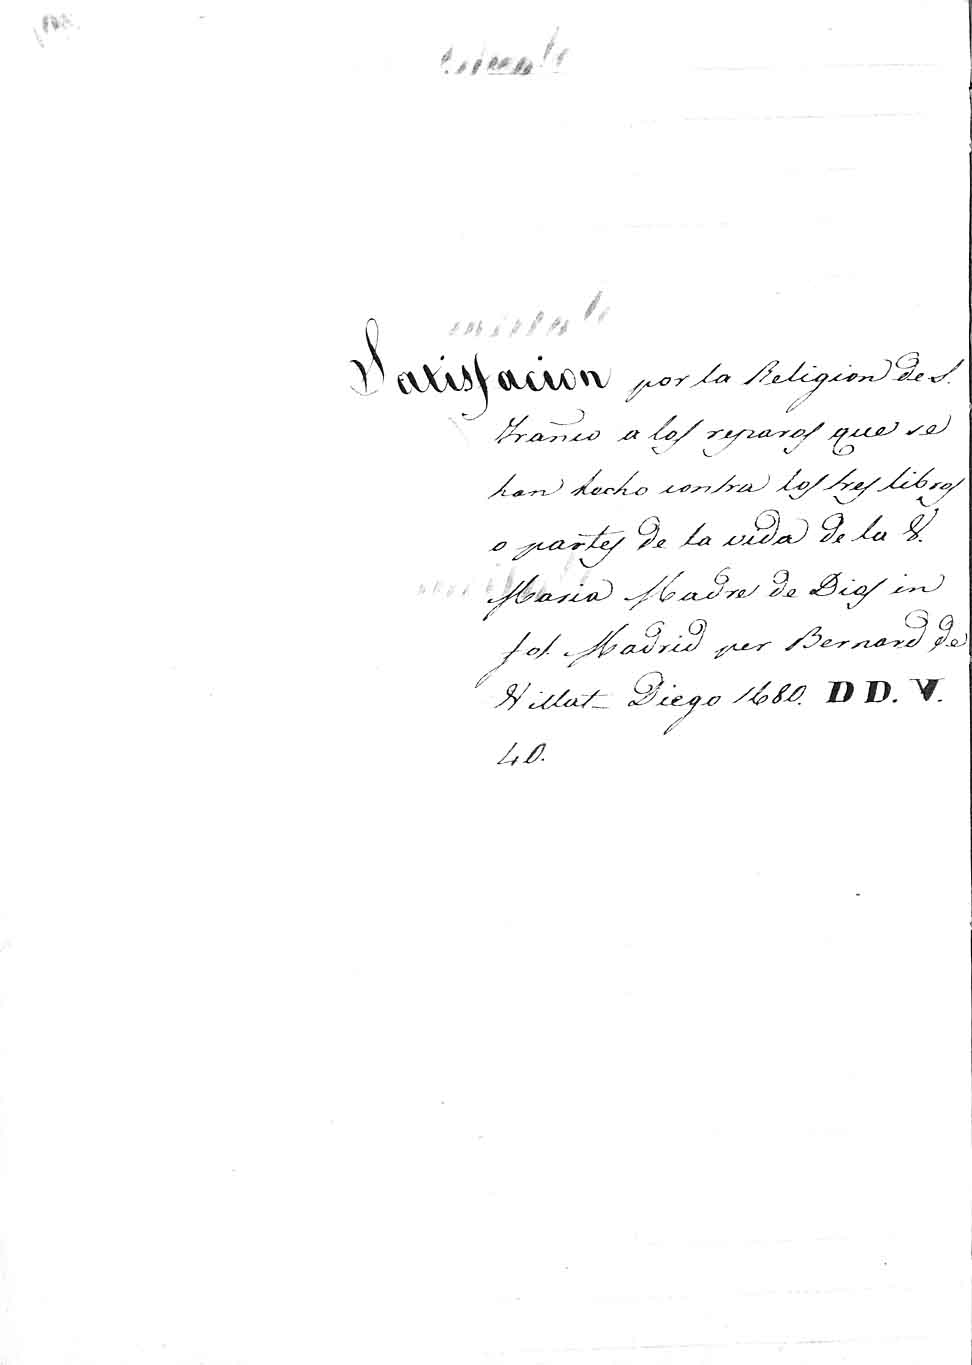 Satisfacion por la Religion de S.
Frañco a los reparos que se
han hecho contra los tres libros
o partes de la vida de la V.
Maria Madre de Dios in
fol. Madrid per Bernard de
Villat- Diego 1680. D D. V.
40.